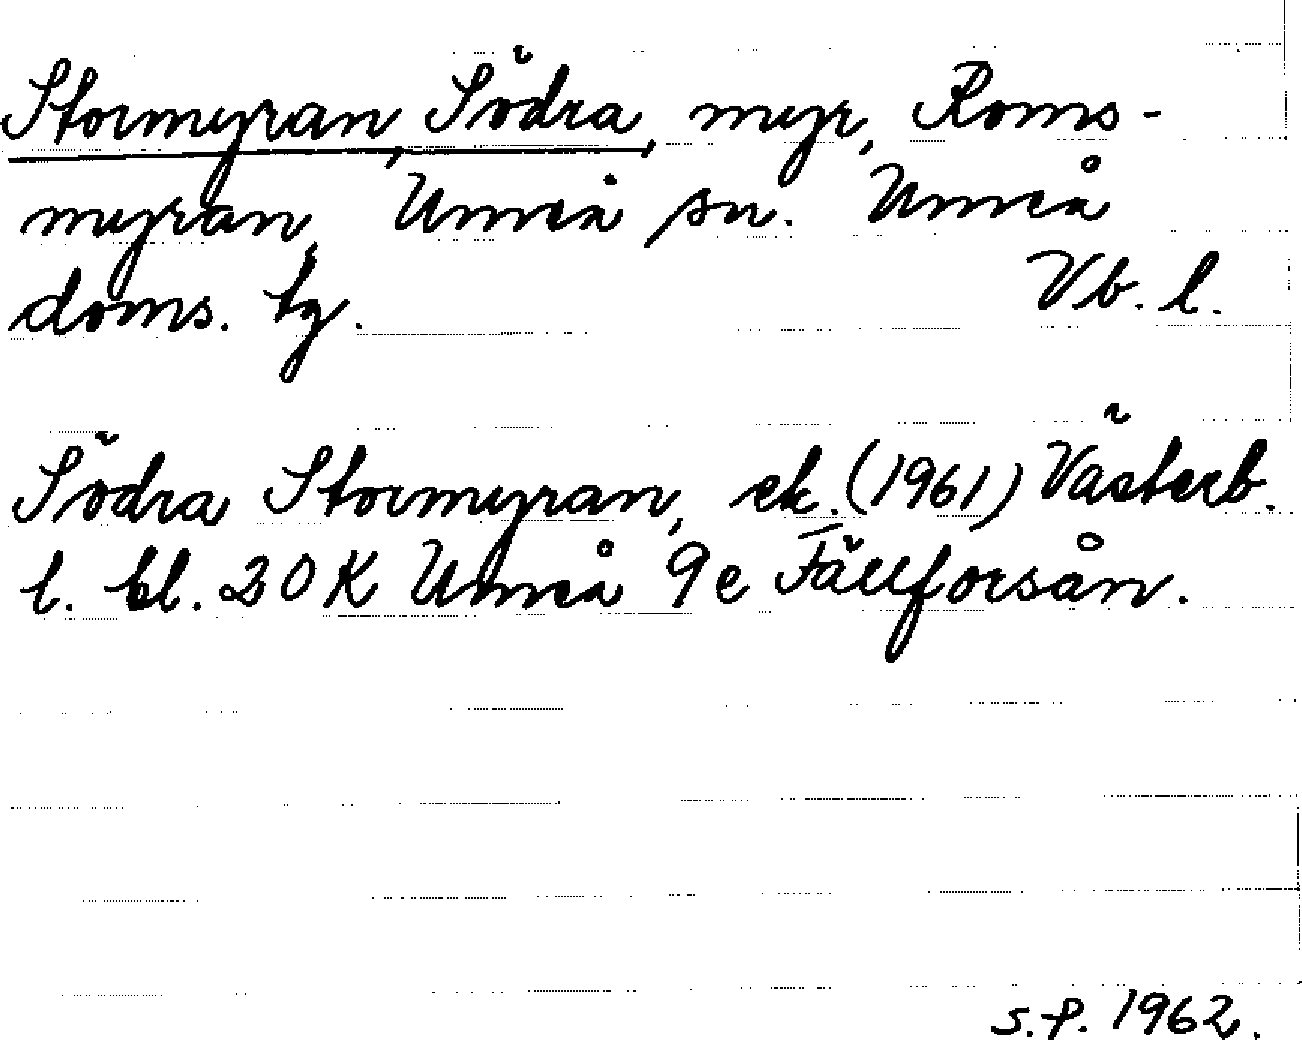 Stormyran, Södra, myr, Roms-
myran, Umeå sn. Umeå
doms. tg. Vb. l.
Södra Stormyran, ek. (1961) Västerb.
l. bl. 20 K Umeå 9e Fällforsån.
s.f. 1962.